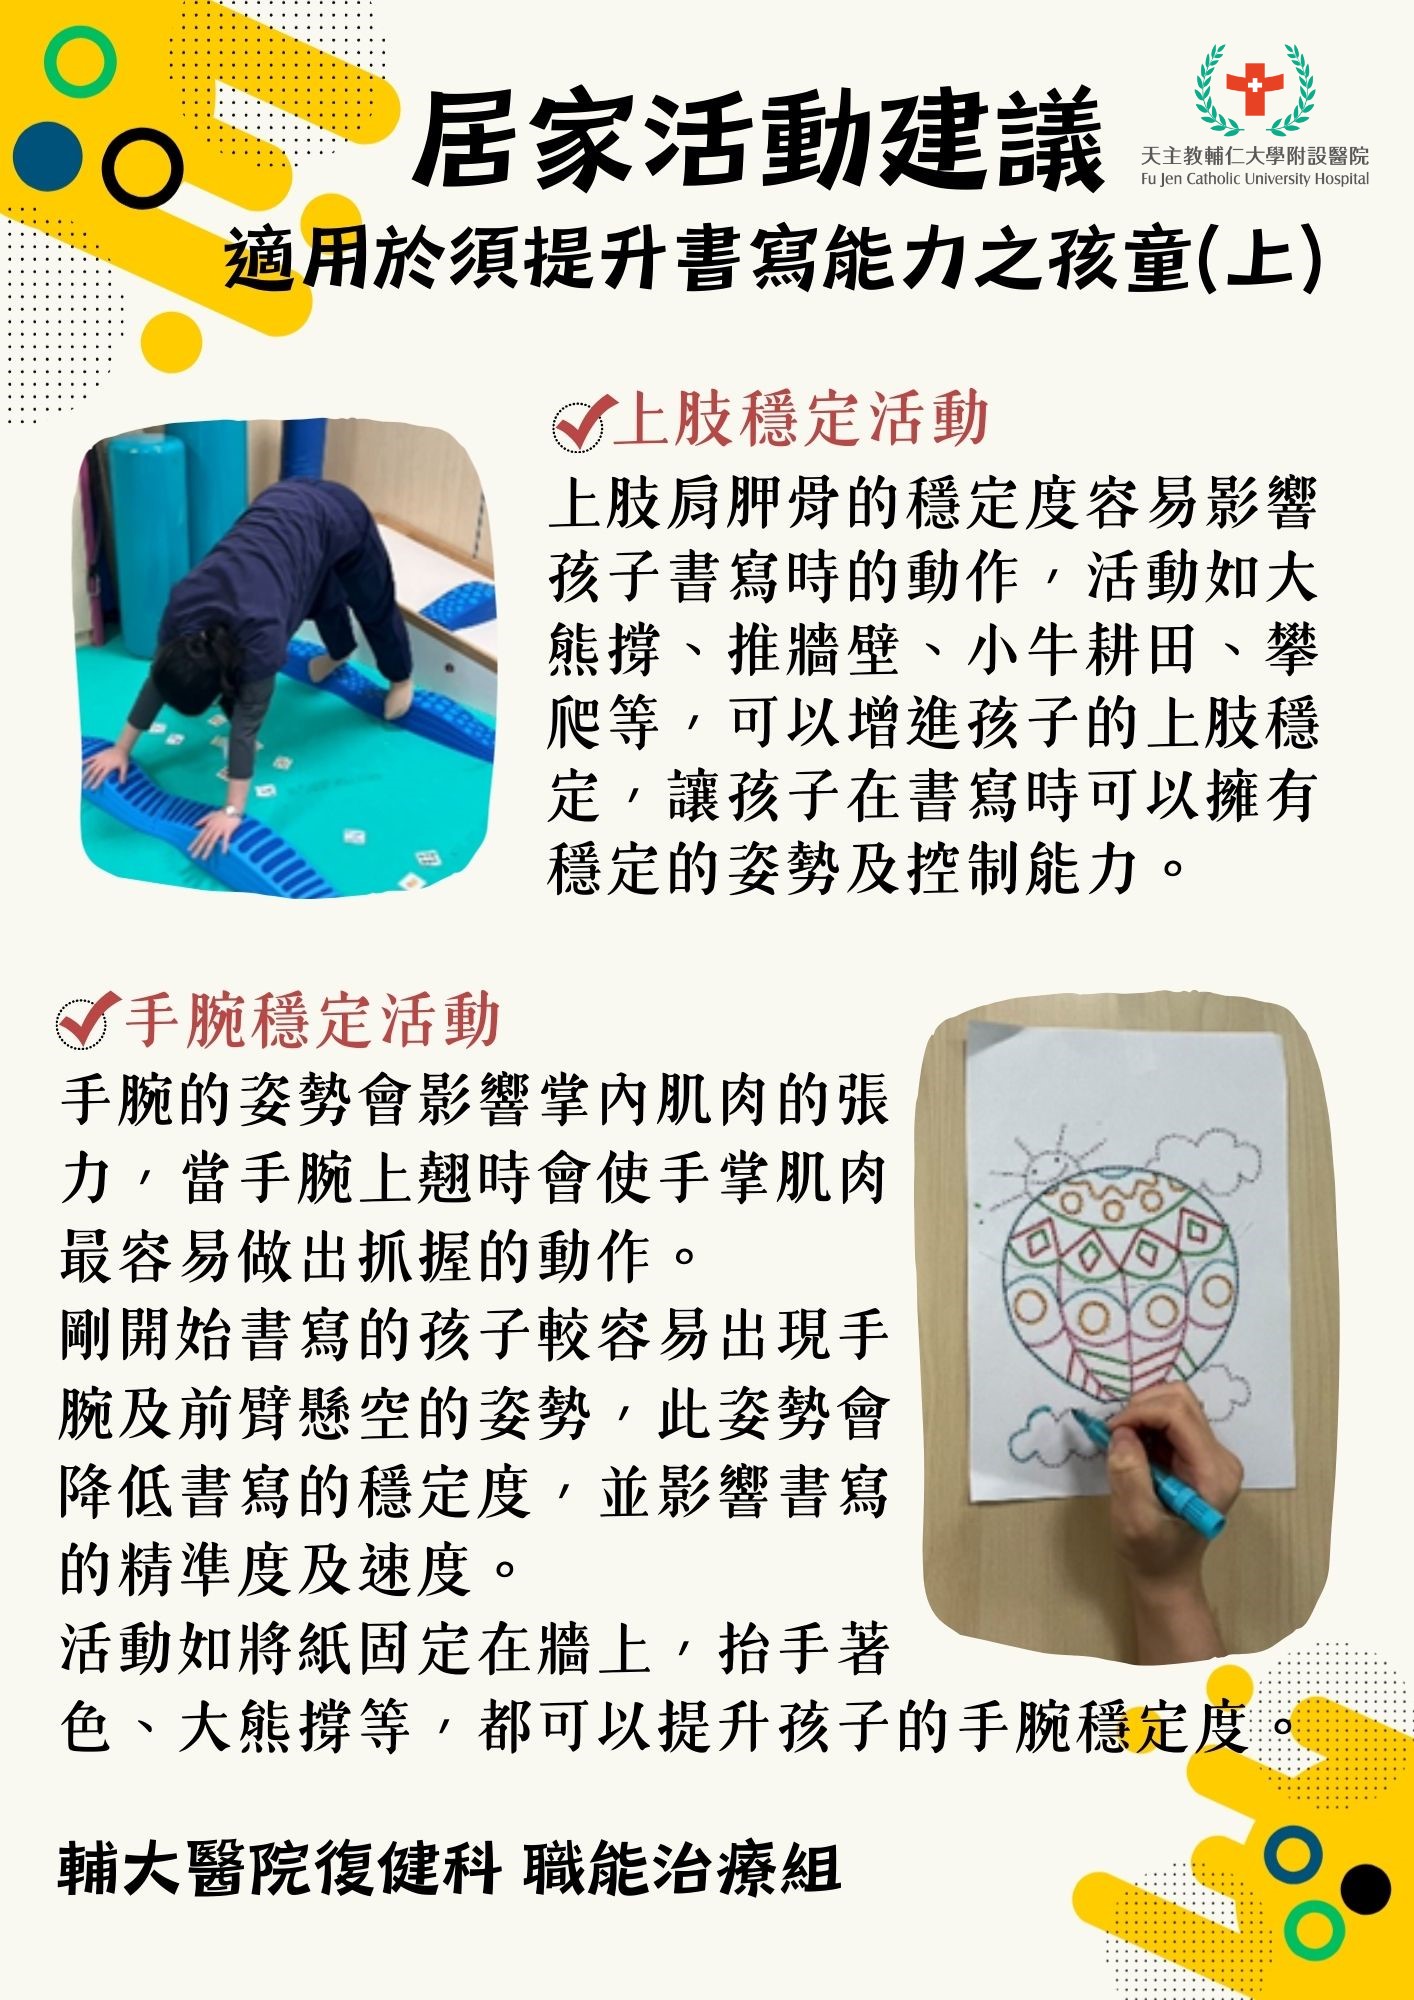 居家活動建議
天主教輔仁大學附設醫院
Fu Jen Catholic University Hospital
適用於須提升書寫能力之孩童(上)
上肢穩定活動
上肢肩胛骨的穩定度容易影響
孩子書寫時的動作，活動如大
熊撐、推牆壁、小牛耕田、攀
爬等，可以增進孩子的上肢穩
定，讓孩子在書寫時可以擁有
穩定的姿勢及控制能力。
手腕穩定活動
手腕的姿勢會影響掌內肌肉的張
力，當手腕上翹時會使手掌肌肉
最容易做出抓握的動作。
剛開始書寫的孩子較容易出現手
腕及前臂懸空的姿勢，此姿勢會
降低書寫的穩定度，並影響書寫
的精準度及速度。
活動如將紙固定在牆上，抬手著
色、大熊撐等，都可以提升孩子的手腕穩定度。
輔大醫院復健科 職能治療組